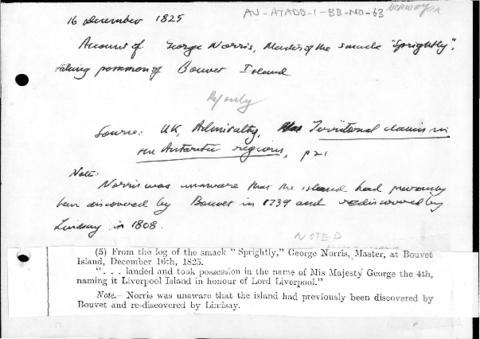 16 December 1825
AU-ATADD-1-BB-NO-63
NORWAY
Account of George Norris, Master of the smack "Sprightly",
taking possession of Bouvet Island
Source: UK, Admiralty, Territorial claims in
the Antarctic regions, p21
Note:
Norris was unaware that the island had previously
been discovered by Bouvet in 1739 and rediscovered by
Lindsay in 1808.
NOTED
(5) From the log of the smack "Sprightly," George Norris, Master, at Bouvet
Island, December 16th, 1825.
". . . landed and took possession in the name of His Majesty George the 4th,
naming it Liverpool Island in honour of Lord Liverpool."
Note.— Norris was unaware that the island had previously been discovered by
Bouvet and re-discovered by Lindsay.